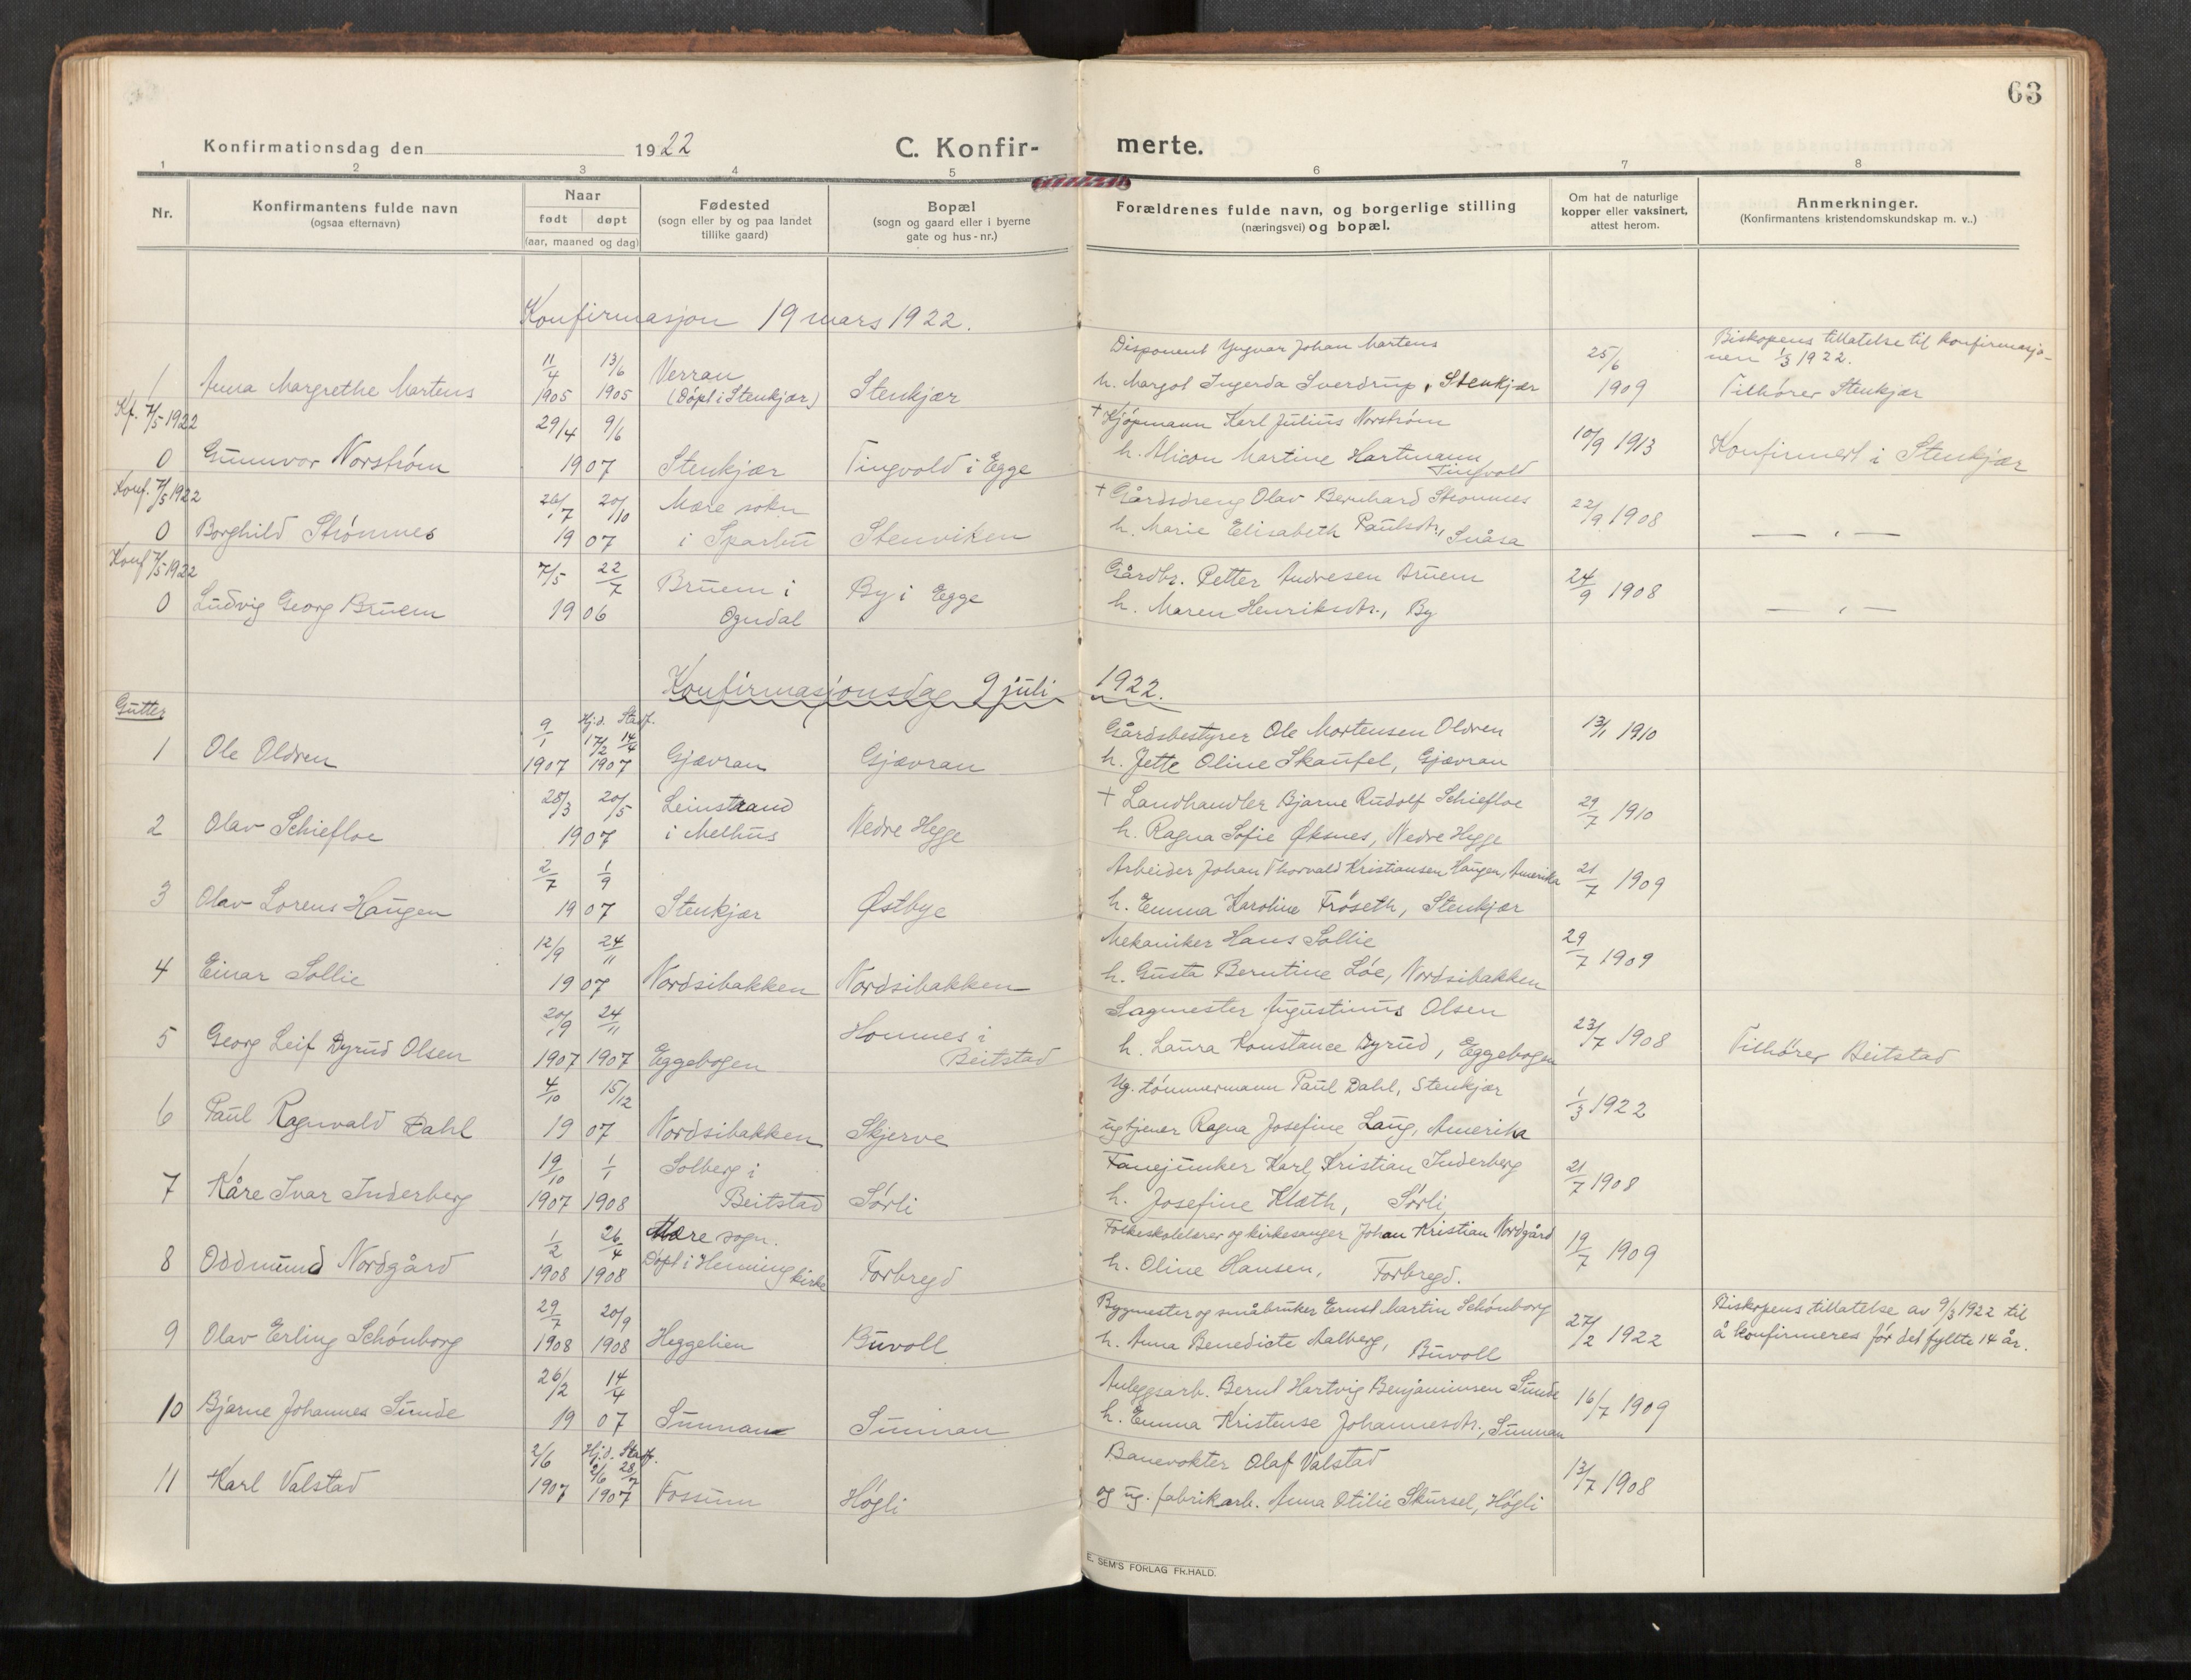 63
Konfirmationsdag den 1922 C. Konfirmerte.
1 2 3 4 5 6 7 8
Nr.
Konfirmantens fulde navn
(ogsaa efternavn)
Naar
født døpt
(aar, maaned og dag)
Fødested
(sogn eller by og paa landet
tillike gaard)
Bopæl
(sogn og gaard eller i byerne
gate og hus-nr.)
Forældrenes fulde navn, og borgerlige stilling
(næringsvei) og bopæl.
Om hat de naturlige
kopper eller vaksinert,
attest herom.
Anmerkninger.
(Konfirmantens kristendomskundskap m. v..)
Konfirmasjon 19 mars 1922.
1 Anna Margrethe Martens 11/4 1905 13/6 1905 Verran (Døpt i Stenkjær) Stenkjær
Disponent Yngvar Johan Martens
h. Margot Ingerda Sverdrup, Stenkjær
25/6 1909
Biskopens tillatelse til konfirmasjo-
nen 1/3 1922.
Tilhører Stenkjær
Kf. 7/5-1922
0 Gunnvor Norstrøm 29/4 9/6 1907 Stenkjær Tingvold i Egge
+ Kjøpmann Karl Julius Norstrøm
h. Alicon Martine Hartmann
Tingvold
10/9 1913 Konfirmert i Stenkjær
Konf. 7/5 1922
0 Borghild Strømnes 26/7 20/10 1907 Mære sokn i Sparbu Stenviken
+ Gårdsdreng Olav Bernhard Strømnes
h. Marie Elisabeth Paulsdtr., Snåsa
22/9 1908 — " —
Konf 7/5-1922
0 Ludvig Georg Bruem 7/5 22/7 1906 Bruem i Ogndal By i Egge
Gårdbr. Petter Andresen Bruem
h. Maren Henriksdtr., By
24/9 1908 — " —
Konfirmasjonsdag 9 juli 1922.
Gutter
1 Ole Oldren 9/1 1907 Hj.d. 17/2 Stadf. 14/4 1907 Gjævran Gjævran
Gårdsbestyrer Ole Mortensen Oldren
h. Jette Oline Skaufel, Gjævran
13/1 1910
2 Olav Schiefloe 28/3 20/5 1907 Leinstrand i Melhus Nedre Hegge
+ Landhandler Bjarne Rudolf Schiefloe
h. Ragna Sofie Øksnes, Nedre Hegge
29/7 1910
3 Olav Lorens Haugen 2/7 1/9 1907 Stenkjær Østbye
Arbeider Johan Thorvald Kristiansen Haugen, Amerika
h. Emma Karoline Frøseth, Stenkjær
21/7 1909
4 Einar Sollie 12/9 24/11 1907 Nordsibakken Nordsibakken
Mekaniker Hans Sollie
h. Gusta Berntine Løe, Nordsibakken
29/7 1909
5 Georg Leif Dyrud Olsen 20/9 1907 24/11 1907 Eggebogen Homnes i Beitstad
Sagmester Augustinus Olsen
h. Laura Konstance Dyrud, Eggebogen
23/7 1908 Tilhører Beitstad
6 Paul Ragnvald Dahl 4/10 15/12 1907 Nordsibakken Skjerve
Ug. tømmermann Paul Dahl, Stenkjær
ug tjener Ragna Josefine Lang, Amerika
1/3 1922
7 Kåre Ivar Inderberg 19/10 1907 1/1 1908 Solberg i Beitstad Sørli
Fanejunker Karl Kristian Inderberg
h. Josefine Klæth, Sørli
21/7 1908
8 Oddmund Nordgård 1/2 1908 26/4 1908 Mære sogn. Døpt i Henning kirke Forbregd
Folkeskolelærer og kirkesanger Johan Kristian Nordgård
h. Oline Hansen, Forbregd.
19/7 1909
9 Olav Erling Schönborg 29/7 1908 20/9 1908 Heggelien Buvoll
Bygmester og småbruker Ernst Martin Schönborg
h. Anna Benedicte Aalberg, Buvoll
27/2 1922
Biskopens tillatelse av 9/3 1922 til
å konfirmeres før det fyllte 14 år.
10 Bjarne Johannes Sunde 26/2 14/4 1907 Sunnan Sunnan
Anleggsarb. Bernt Hartvig Benjaminsen Sunde
h. Emma Kristense Johannesdtr., Sunnan
16/7 1909
11 Karl Valstad 2/6 1907 Hj.d. 2/6 Stadf. 28/7 1907 Fossum Høgli
Banevokter Olaf Valstad
og ug. fabrikarb. Anna Otilie Skursel, Høgli
13/7 1908
E. SEM'S FORLAG FR.HALD.